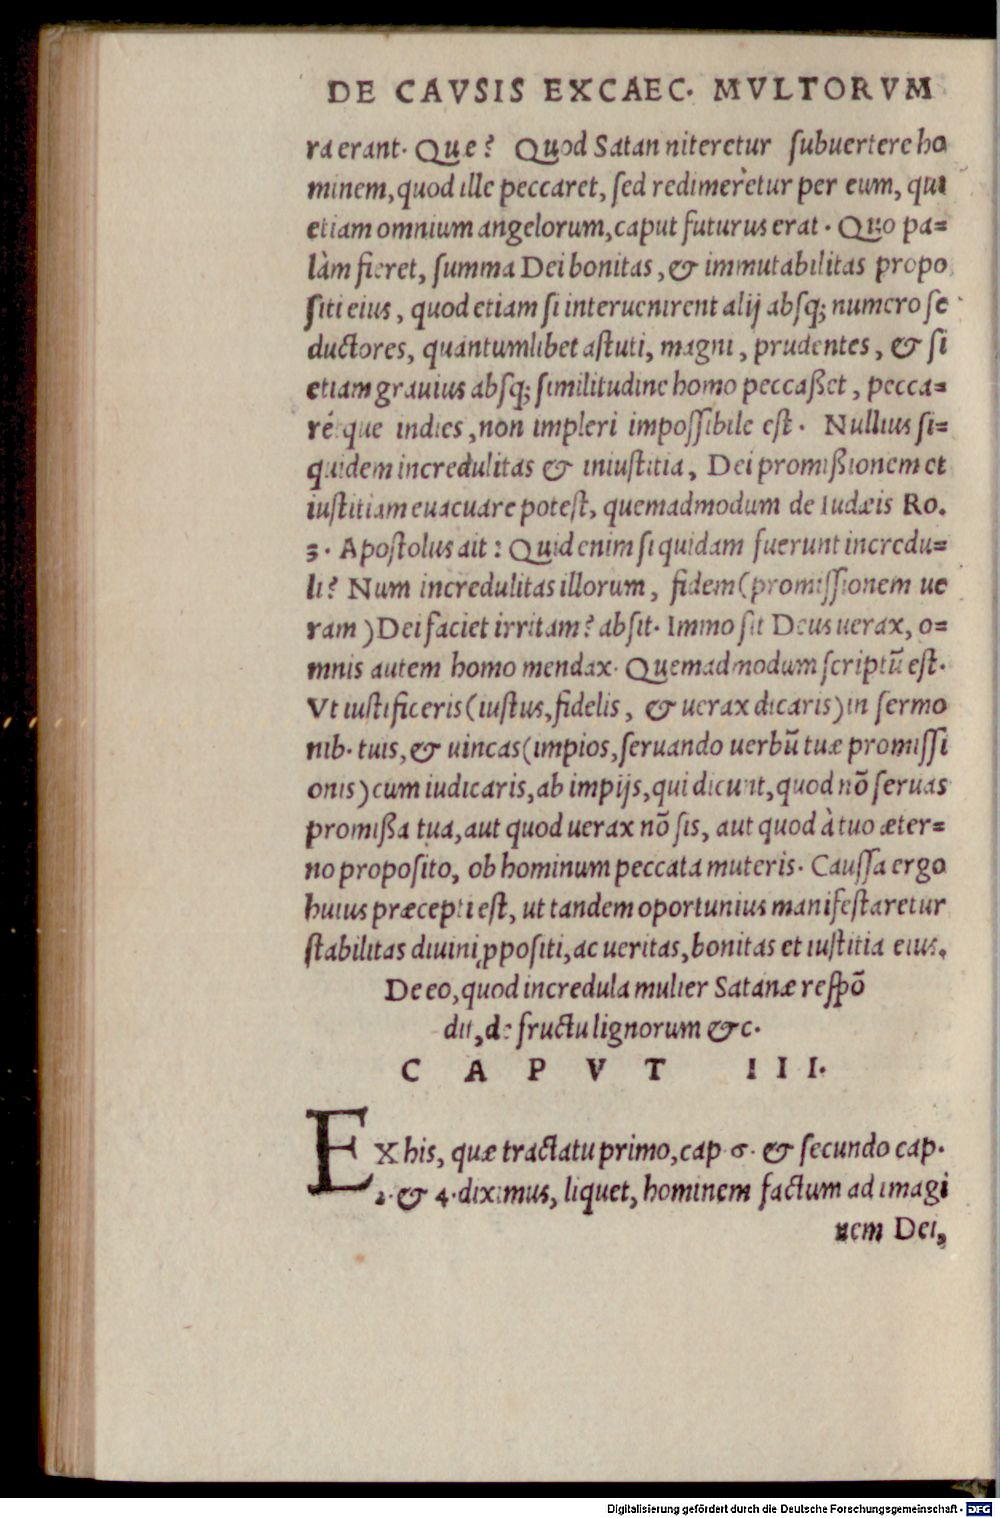 DE CAVSIS EXCAEC. MVLTORVM
ra erant. Quæ? Quod Satan niteretur ſubuertere ho
minem, quod ille peccaret, ſed redimeretur per eum, qui
etiam omnium angelorum, caput futurus erat. Quo pa=
làm fieret, ſumma Dei bonitas, & immutabilitas propo
ſiti eius, quod etiam ſi interuenirent alij abſq; numero ſe
ductores, quantumlibet aſtuti, magni, prudentes, & ſi
etiam grauius abſq; ſimilitudine homo peccaßet, pecca=
rétque indies, non impleri impoſſibile eſt. Nullius ſi=
quidem incredulitas & iniuſtitia, Dei promißionem et
iuſtitiam euacuare poteſt, quemadmodum de Iudæis Ro.
3. Apoſtolus ait: Quid enim ſi quidam fuerunt incredu=
li? Num incredulitas illorum, fidem (promiſſionem ue
ram) Dei faciet irritam? abſit. Immo ſit Deus uerax, o=
mnis autem homo mendax. Quemadmodum ſcriptū eſt.
Vt iuſtificeris (iuſtus, fidelis, & uerax dicaris) in ſermo
nib. tuis, & uincas (impios, ſeruando uerbū tuæ promiſſi
onis) cum iudicaris, ab impijs, qui dicunt, quod nō ſeruas
promißa tua, aut quod uerax nō ſis, aut quod à tuo æter=
no propoſito, ob hominum peccata muteris. Cauſſa ergo
huius præcepti eſt, ut tandem oportunius manifeſtaretur
ſtabilitas diuini ꝓpoſiti, ac ueritas, bonitas et iuſtitia eius.
De eo, quod incredula mulier Satanæ reſpō
dit, de fructu lignorum &c.
CAPVT III.
EX his, quæ tractatu primo, cap. 6. & ſecundo cap.
2. & 4. diximus, liquet, hominem factum ad imagi
nem Dei,
Digitalisierung gefördert durch die Deutsche Forschungsgemeinschaft - DFG